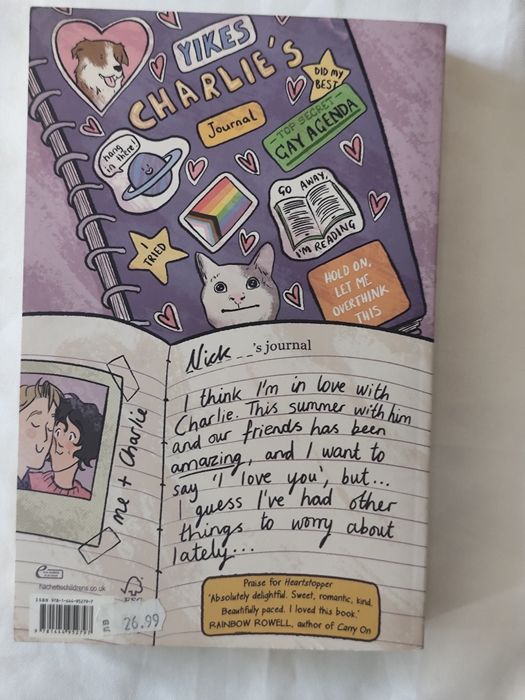 YIKES
CHARLIE'S
Journal
DID MY
BEST
TOP SECRET
GAY AGENDA
hang
in there!
GO AWAY,
I'M READING
I
TRIED
HOLD ON,
LET ME
OVERTHINK
THIS
Nick _ _'s journal
I think I'm in love with
Charlie. This summer with him
and our friends has been
amazing, and I want to
say 'I love you', but...
I guess I've had other
things to worry about
lately...
me + Charlie
hachettechildrens.co.uk
ISBN 978-1-444-95279-7
9 781444 952797
26.99
Praise for Heartstopper
'Absolutely delightful. Sweet, romantic, kind.
Beautifully paced. I loved this book.'
RAINBOW ROWELL, author of Carry On